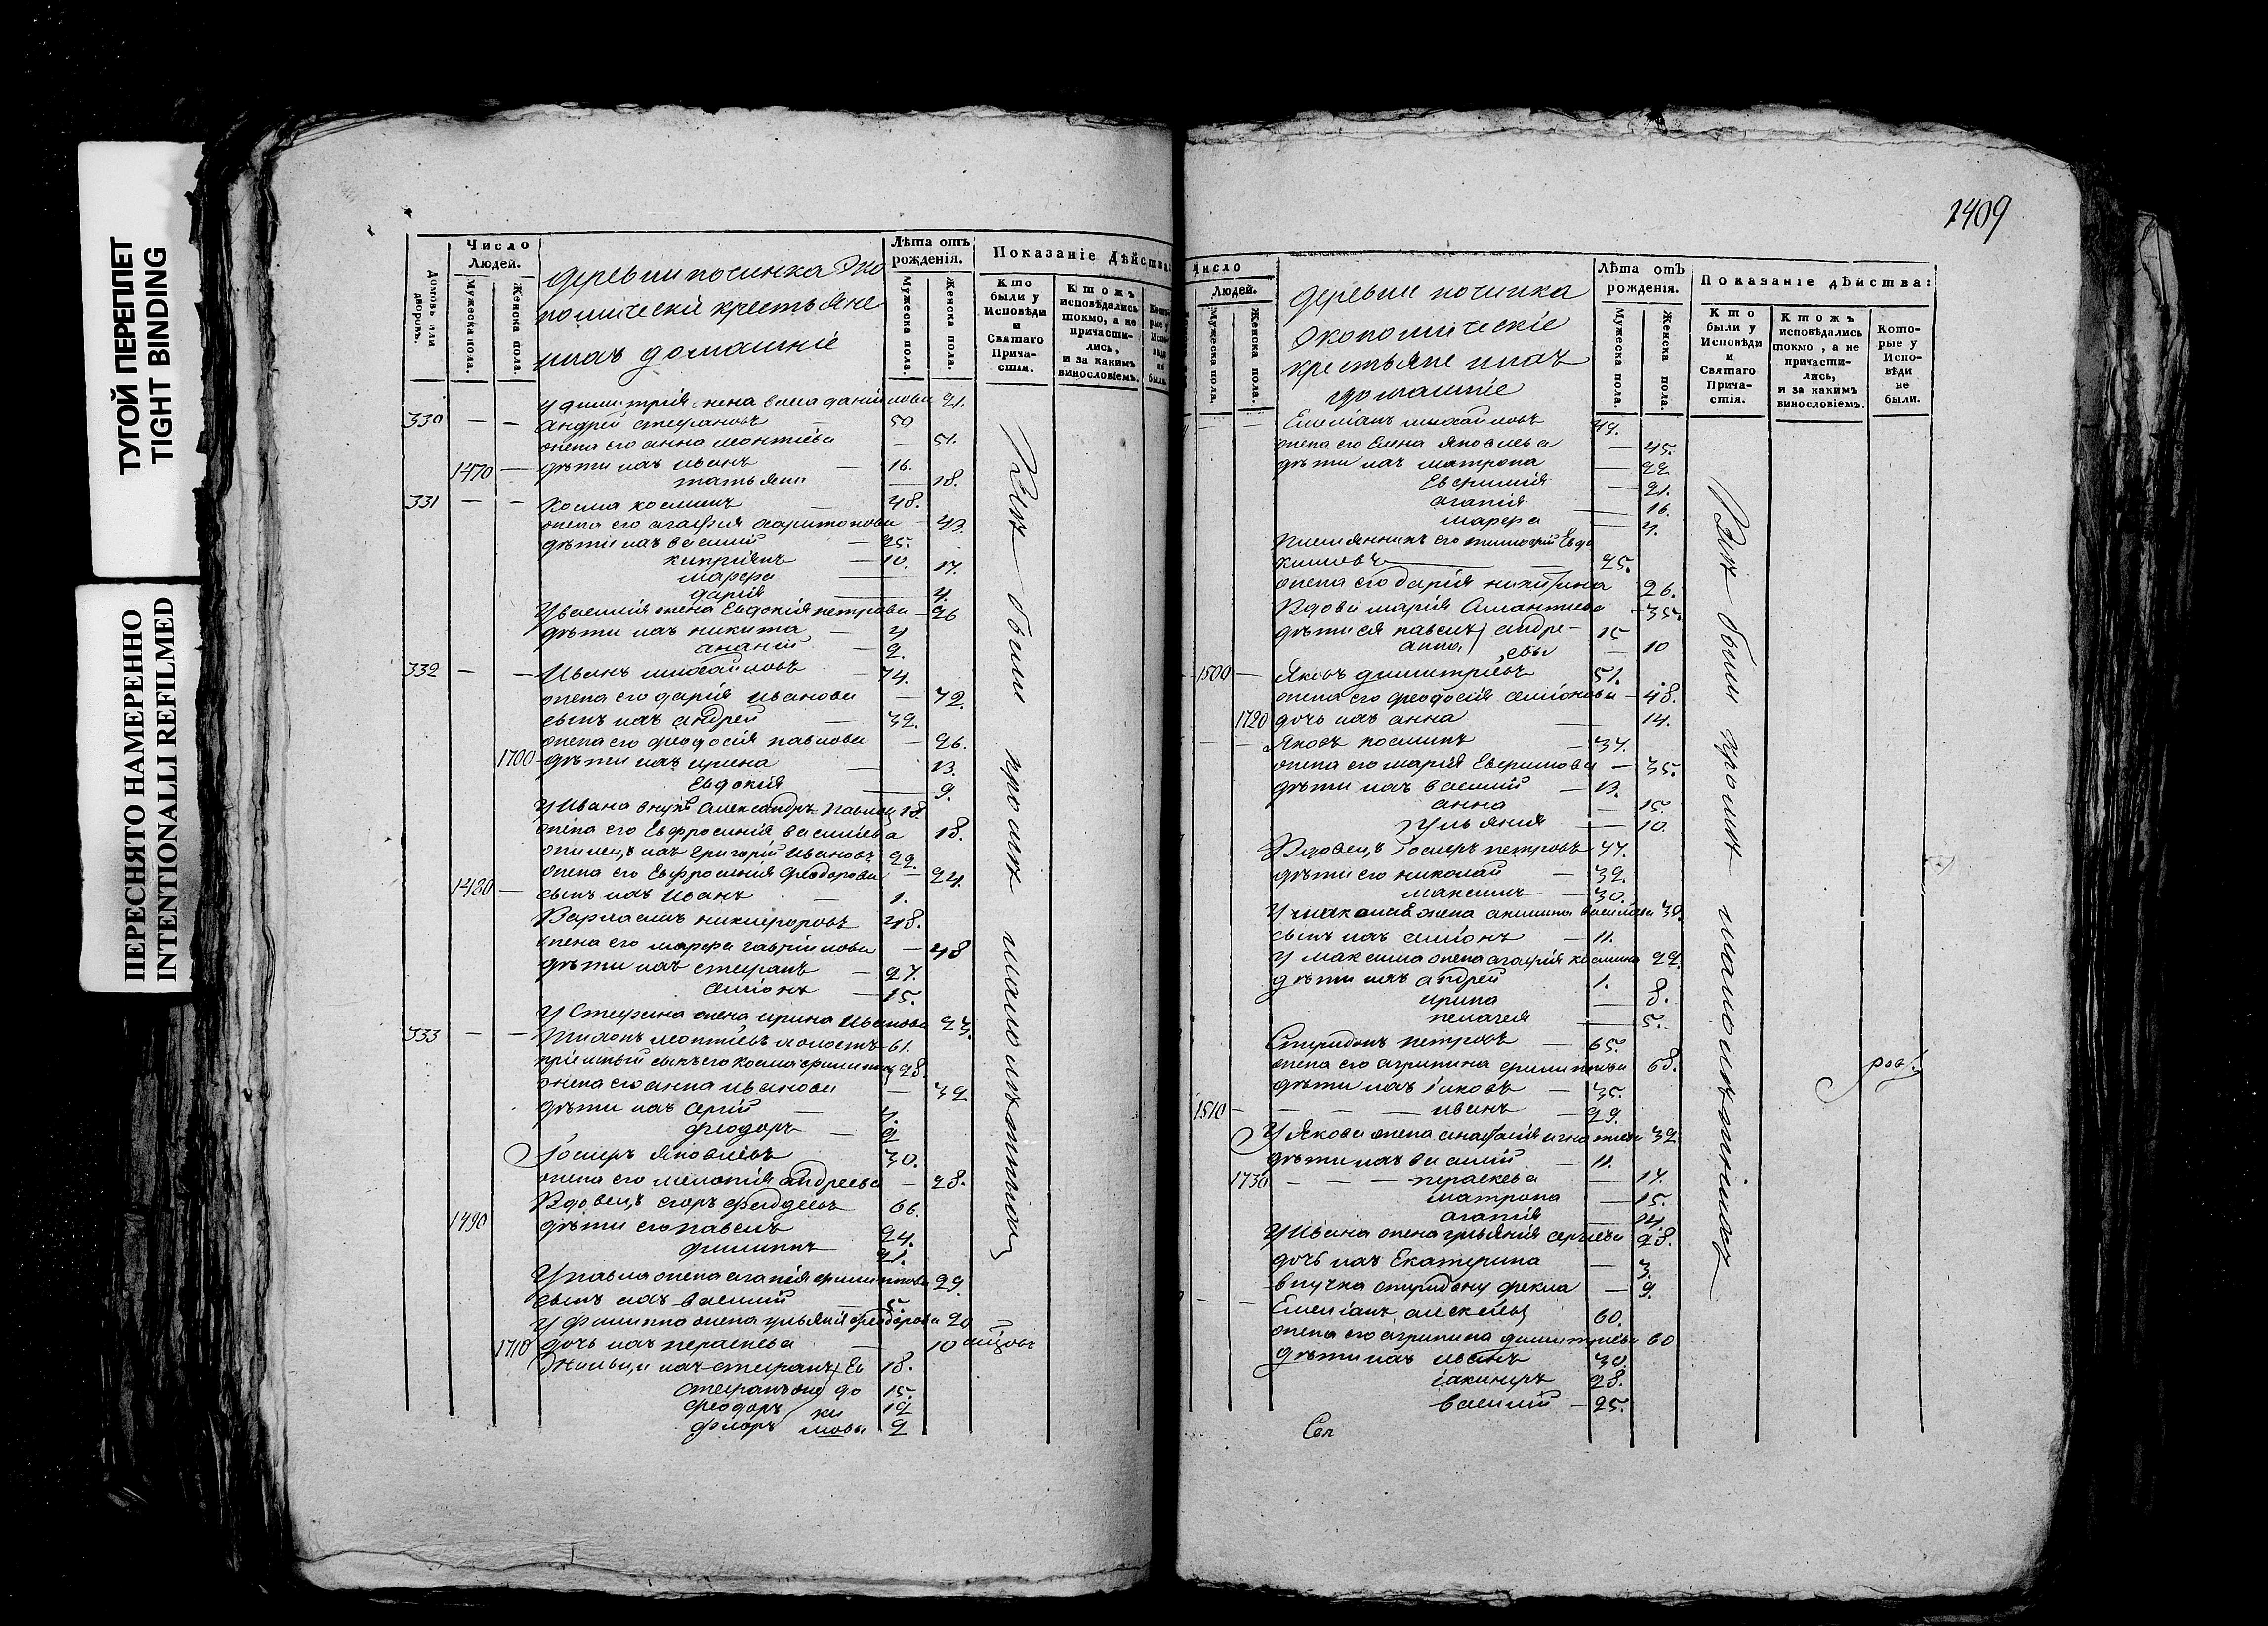 ТУГОЙ ПЕРЕПЛЕТ
TIGHT BINDING
ПЕРЕСНЯТО НАМЕРЕННО
INTENTIONALLI REFILMED
Домовъ или дворовъ.
Число Людей.
Мужеска пола.
Женска пола.
деревни починка Эко
номическiе крестьяне
ихъ домашнiе
Лѣта отъ рожденiя.
Мужеска пола.
Женска пола.
Показанiе Дѣйства
Кто были у Исповѣди и Святаго Причастiя.
Ктожъ исповѣдались токмо, а не причастились, и за какимъ винословiемъ.
у димитрiя жена данiилова 21.
330 — — Андрей стефановъ 50
жена его анна леонтiева — 51.
1470 — дѣти ихъ иванъ — 16.
татьяна — 18.
331 — — Косма косминъ 48.
жена его агафiя харитонова — 43.
дѣти ихъ василiй — 25.
кипрiянъ — 10.
марфа — 17.
дарiя — 4.
У василiя жена Евдокiя петрова — 26
дѣти ихъ никита — 4
ананiй — 2.
332 — — Иванъ михайловъ — 74.
жена его дарiя иванова — 72.
сынъ ихъ андрей — 32.
жена его феодосiя павлова — 26.
1700 дѣти ихъ ирина — 13.
Евдокiя — 9.
У Ивана внукъ Александръ Павловъ 18.
жена его Евфросинiя василiева 18.
ихъ григорiй Ивановъ 22.
жена его Евфросинiя феодорова — 24.
1480 — сынъ ихъ Иванъ — 1.
Варлаамъ никифоровъ 48.
жена его марфа гаврiилова — 48
дѣти ихъ стефанъ — 27.
симiонъ — 15.
У Стефана жена ирина Иванова 23.
333 — — Тихонъ леонтiевъ холостъ 61.
прiемный сынъ его Косма филиповъ 28.
жена его анна иванова — 32
дѣти ихъ сергiй — 4.
феодоръ — 2
Iосифъ яковлевъ 30.
жена его андреева — 28.
Вдовецъ егоръ 66.
1490 дѣти его павелъ 24.
филиппъ 21.
У павла жена агапiя филиппова 22.
сынъ ихъ василiй — 5.
У филиппа жена ульянiя феодорова 20
1710 дочь ихъ параскева — 10
стефанъ 18.
стефанъ 15.
феодоръ 12
флоръ 2
Всѣ были кромѣ малолѣтныхъ
1409
Число Людей.
Мужеска пола.
Женска пола.
деревни починка
экономическiе
крестьяне ихъ
домашнiе
Лѣта отъ рожденiя.
Мужеска пола.
Женска пола.
Показанiе дѣйства:
Кто были у Исповѣди и Святаго Причастiя.
Ктожъ исповѣдались токмо, а не причастились, и за какимъ винословiемъ.
Которые у Исповѣди не были.
Емелiанъ михайловъ 49.
жена его Елена Яковлева — 45.
дѣти ихъ матрона — 22
Евфимiя — 21.
агапiя — 16.
марфа — 4.
Племянникъ его тимофей Евдо
кимовъ — 25.
жена его дарiя никитина 26.
Вдова марiя 35.
дѣти ея павелъ андре- 15
анна евы — 10
1500 — Яковъ димитрiевъ 51.
жена его феодосiя симiонова — 48.
1720 дочь ихъ анна — 14.
Яковъ косминъ — 37.
жена его марiя Евфимова — 35.
дѣти ихъ василiй — 13.
анна — 15.
ульянiя — 10.
Вдовецъ Iосифъ петровъ 77.
дѣти его николай — 32.
максимъ — 30.
жена акилина василiева 30.
сынъ ихъ симiонъ — 11.
У максима жена агафiя космина 22.
дѣти ихъ андрей 1.
ирина — 8.
пелагея — 5.
Спиридонъ петровъ — 65.
жена его агрипина филиппова 68.
дѣти ихъ Iаковъ — 35.
1510 — — — — иванъ — 22.
У Якова жена анастасiя игнатiева 32
дѣти ихъ василiй — 11.
1730 — — — параскева — 17.
матрона — 15.
агапiя — 14.
У Ивана жена ульянiя сергiева 28.
дочь ихъ Екатерина — 3.
внучка спиридону фекла — 9.
Емелiанъ алексѣевъ 60.
жена его агрипина димитрiева 60
дѣти ихъ иванъ 30.
iакинфъ 28.
василiй — 25.
Всѣ были кромѣ малолѣтнихъ